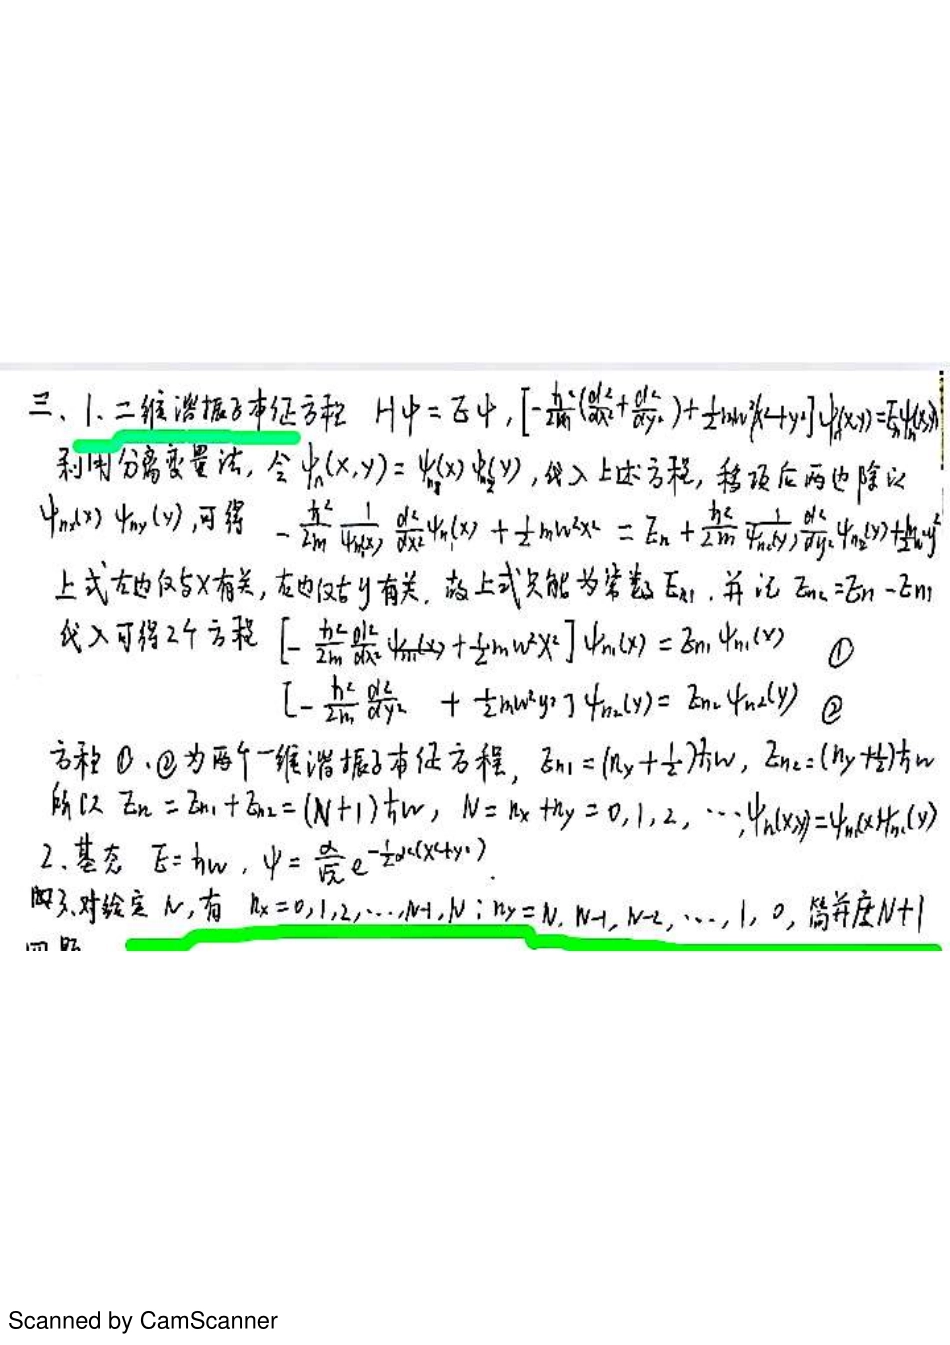 三、1、二维谐振子本征方程 Hψ = Eψ, [-ħ²/2m (d²/dx² + d²/dy²) + ½mw²(x²+y²)] ψn(x,y) = En ψn(x,y)
利用分离变量法, 令 ψn(x,y) = ψn1(x) ψn2(y), 代入上述方程, 移项后两边除以
ψnx(x) ψny(y), 可得 -ħ²/2m 1/ψn1(x) d²/dx² ψn1(x) + ½mw²x² = En + ħ²/2m 1/ψn2(y) d²/dy² ψn2(y) + ½mw²y²
上式左边仅与x有关, 右边仅与y有关. 故上式只能为常数 En1, 并记 En2 = En - En1
代入可得2个方程 [-ħ²/2m d²/dx² + ½mw²x²] ψn1(x) = En1 ψn1(x) ①
[-ħ²/2m d²/dy² + ½mw²y²] ψn2(y) = En2 ψn2(y) ②
方程①、②为两个一维谐振子本征方程, En1 = (nx + ½)ħw, En2 = (ny + ½)ħw
所以 En = En1 + En2 = (N+1)ħw, N = nx + ny = 0,1,2, …, ψn(x,y) = ψn1(x)ψn2(y)
2、基态 E = ħw, ψ = α/√π e^{-½α²(x²+y²)}.
3、对给定 N, 有 nx = 0,1,2,…,N-1,N; ny = N, N-1, N-2, …, 1, 0, 简并度N+1
Scanned by CamScanner